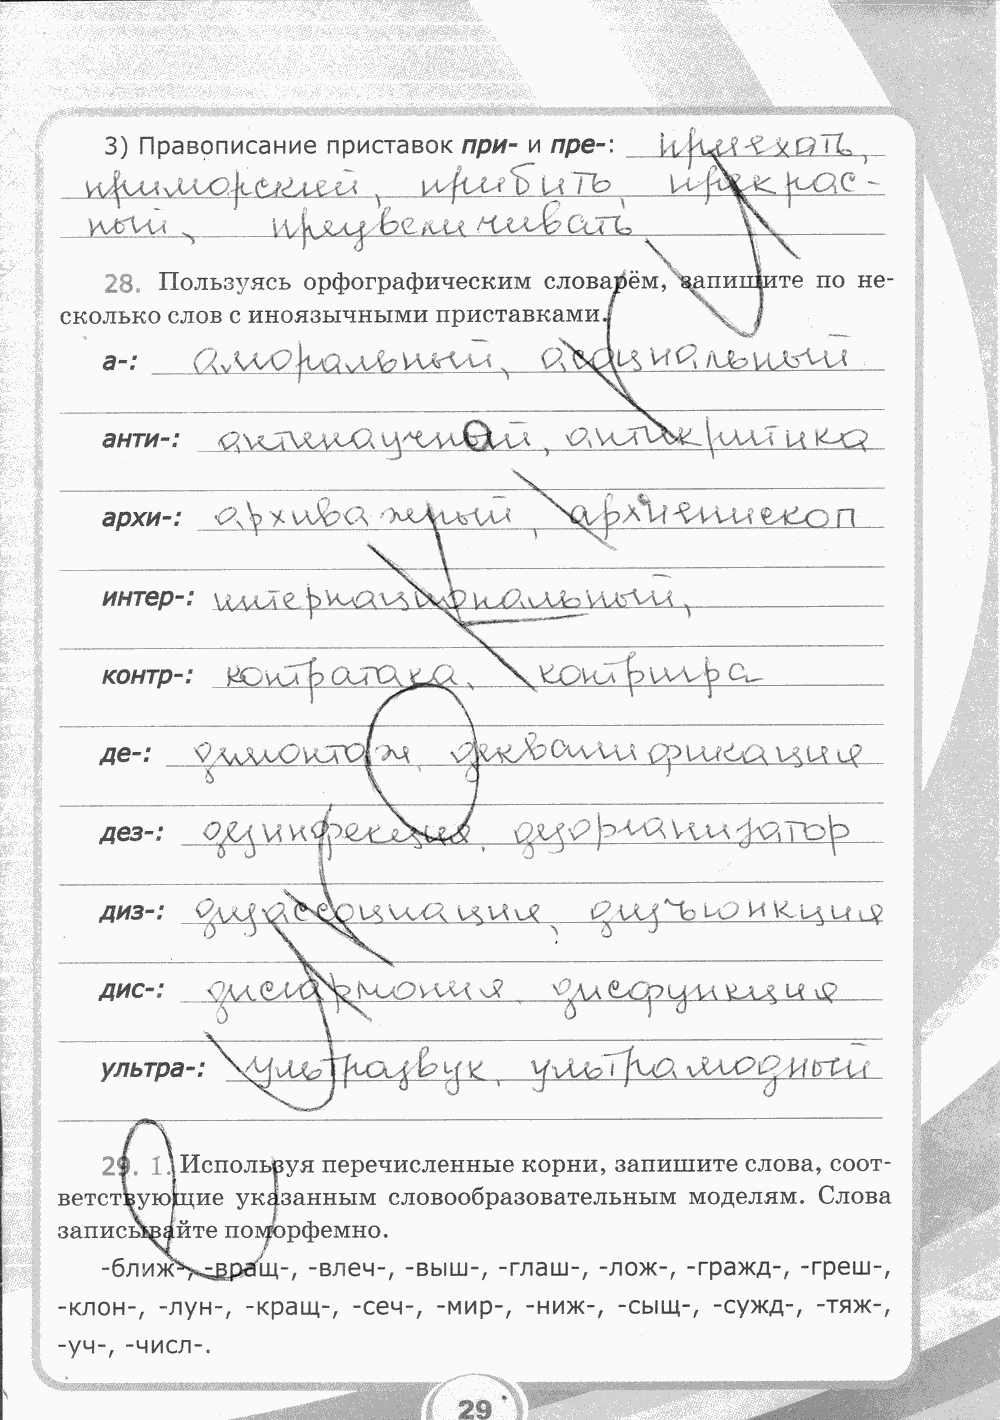 3) Правописание приставок при- и пре-: приехать,
приморский, прибить, прекрас-
ный, преувеличивать
28. Пользуясь орфографическим словарём, запишите по не-
сколько слов с иноязычными приставками.
а-: аморальный, асоциальный
анти-: антинаучный, антикритика
архи-: архиважный, архиепископ
интер-: интернациональный,
контр-: контратака, контригра
де-: демонтаж, деквалификация
дез-: дезинфекция, дезорганизатор
диз-: дизассоциация, дизъюнкция
дис-: дисгармония, дисфункция
ультра-: ультразвук, ультрамодный
29. 1. Используя перечисленные корни, запишите слова, соот-
ветствующие указанным словообразовательным моделям. Слова
записывайте поморфемно.
-ближ-, -вращ-, -влеч-, -выш-, -глаш-, -лож-, -гражд-, -греш-,
-клон-, -лун-, -кращ-, -сеч-, -мир-, -ниж-, -сыщ-, -сужд-, -тяж-,
-уч-, -числ-.
29